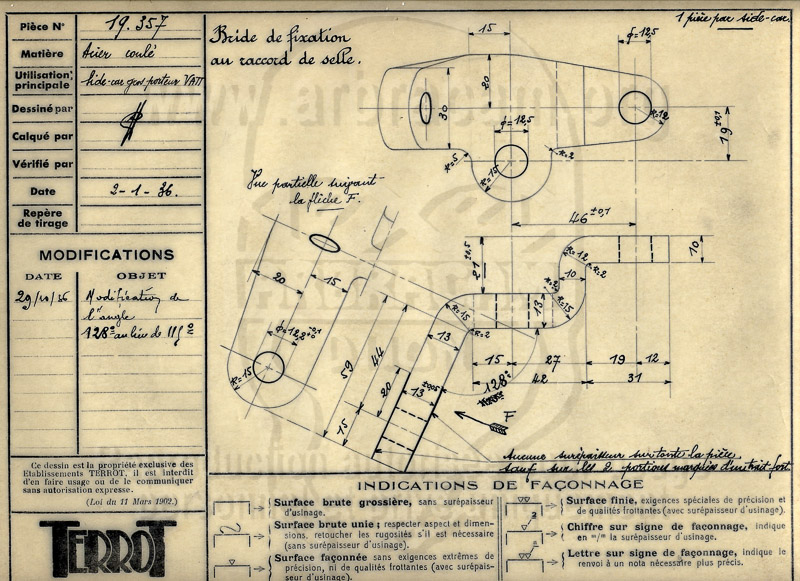 Pièce N° 19.357
Matière Acier coulé
Utilisation principale Side-car gros porteur VATT
Dessiné par
Calqué par
Vérifié par
Date 2-1-36.
Repère de tirage
MODIFICATIONS
DATE OBJET
29/10/36 Modification de
l'angle
128° au lieu de 115°
Ce dessin est la propriété exclusive des
Etablissements TERROT, il est interdit
d'en faire usage ou de le communiquer
sans autorisation expresse.
(Loi du 11 Mars 1902.)
TERROT
Bride de fixation
au raccord de selle.
1 pièce par side-car.
15
φ=12,5
20
30
φ=12,5
R=12
19±0,1
R=5
R=15
R=2
46±0,1
Vue partielle suivant
la flèche F.
20
15
φ=12,2
R=15
59
44
20
15
13
13
R=15
R=2
21
R=12
R=2
10
10
13
R=15
15
27
19
12
128°
42
31
F
Aucune surépaisseur sur toute la pièce.
sauf sur les 2 portions marquées d'un trait fort
INDICATIONS DE FAÇONNAGE
Surface brute grossière, sans surépaisseur
d'usinage.
Surface brute unie; respecter aspect et dimen-
sions, retoucher les rugosités s'il est nécessaire
(sans surépaisseur d'usinage).
Surface façonnée sans exigences extrêmes de
précision, ni de qualités frottantes (avec surépais-
seur d'usinage).
Surface finie, exigences spéciales de précision et
de qualités frottantes (avec surépaisseur d'usinage).
Chiffre sur signe de façonnage, indique
en m/m la surépaisseur d'usinage.
Lettre sur signe de façonnage, indique le
renvoi à un nota nécessaire plus précis.